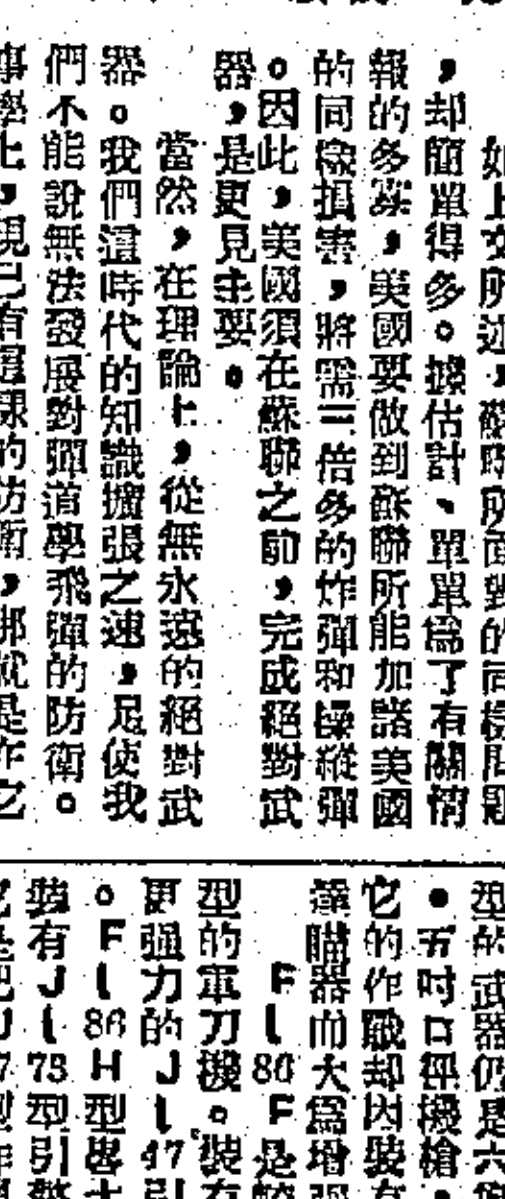 如上文所述，蘇聯所面對的同樣問題
，却簡單得多。據估計、單單爲了有關情
報的多寡，美國要做到蘇聯所能加諸美國
的同樣損害，將需二倍多的炸彈和操縱彈
。因此，美國須在蘇聯之前，完成絕對武
器，是更見主要。
當然，在理論上，從無永遠的絕對武
器。我們這時代的知識擴張之速，足使我
們不能說無法發展對彈道學飛彈的防衛。
事學上，現已有這樣的防衛，那就是在它
型的武器仍是六
。五吋口徑機槍，
它的作戰却因裝有
達瞄器而大爲增強
F(86F是較
型的軍刀機。裝有
更强力的J(47型引
。F(86H型畧大
裝有J(73型引擎